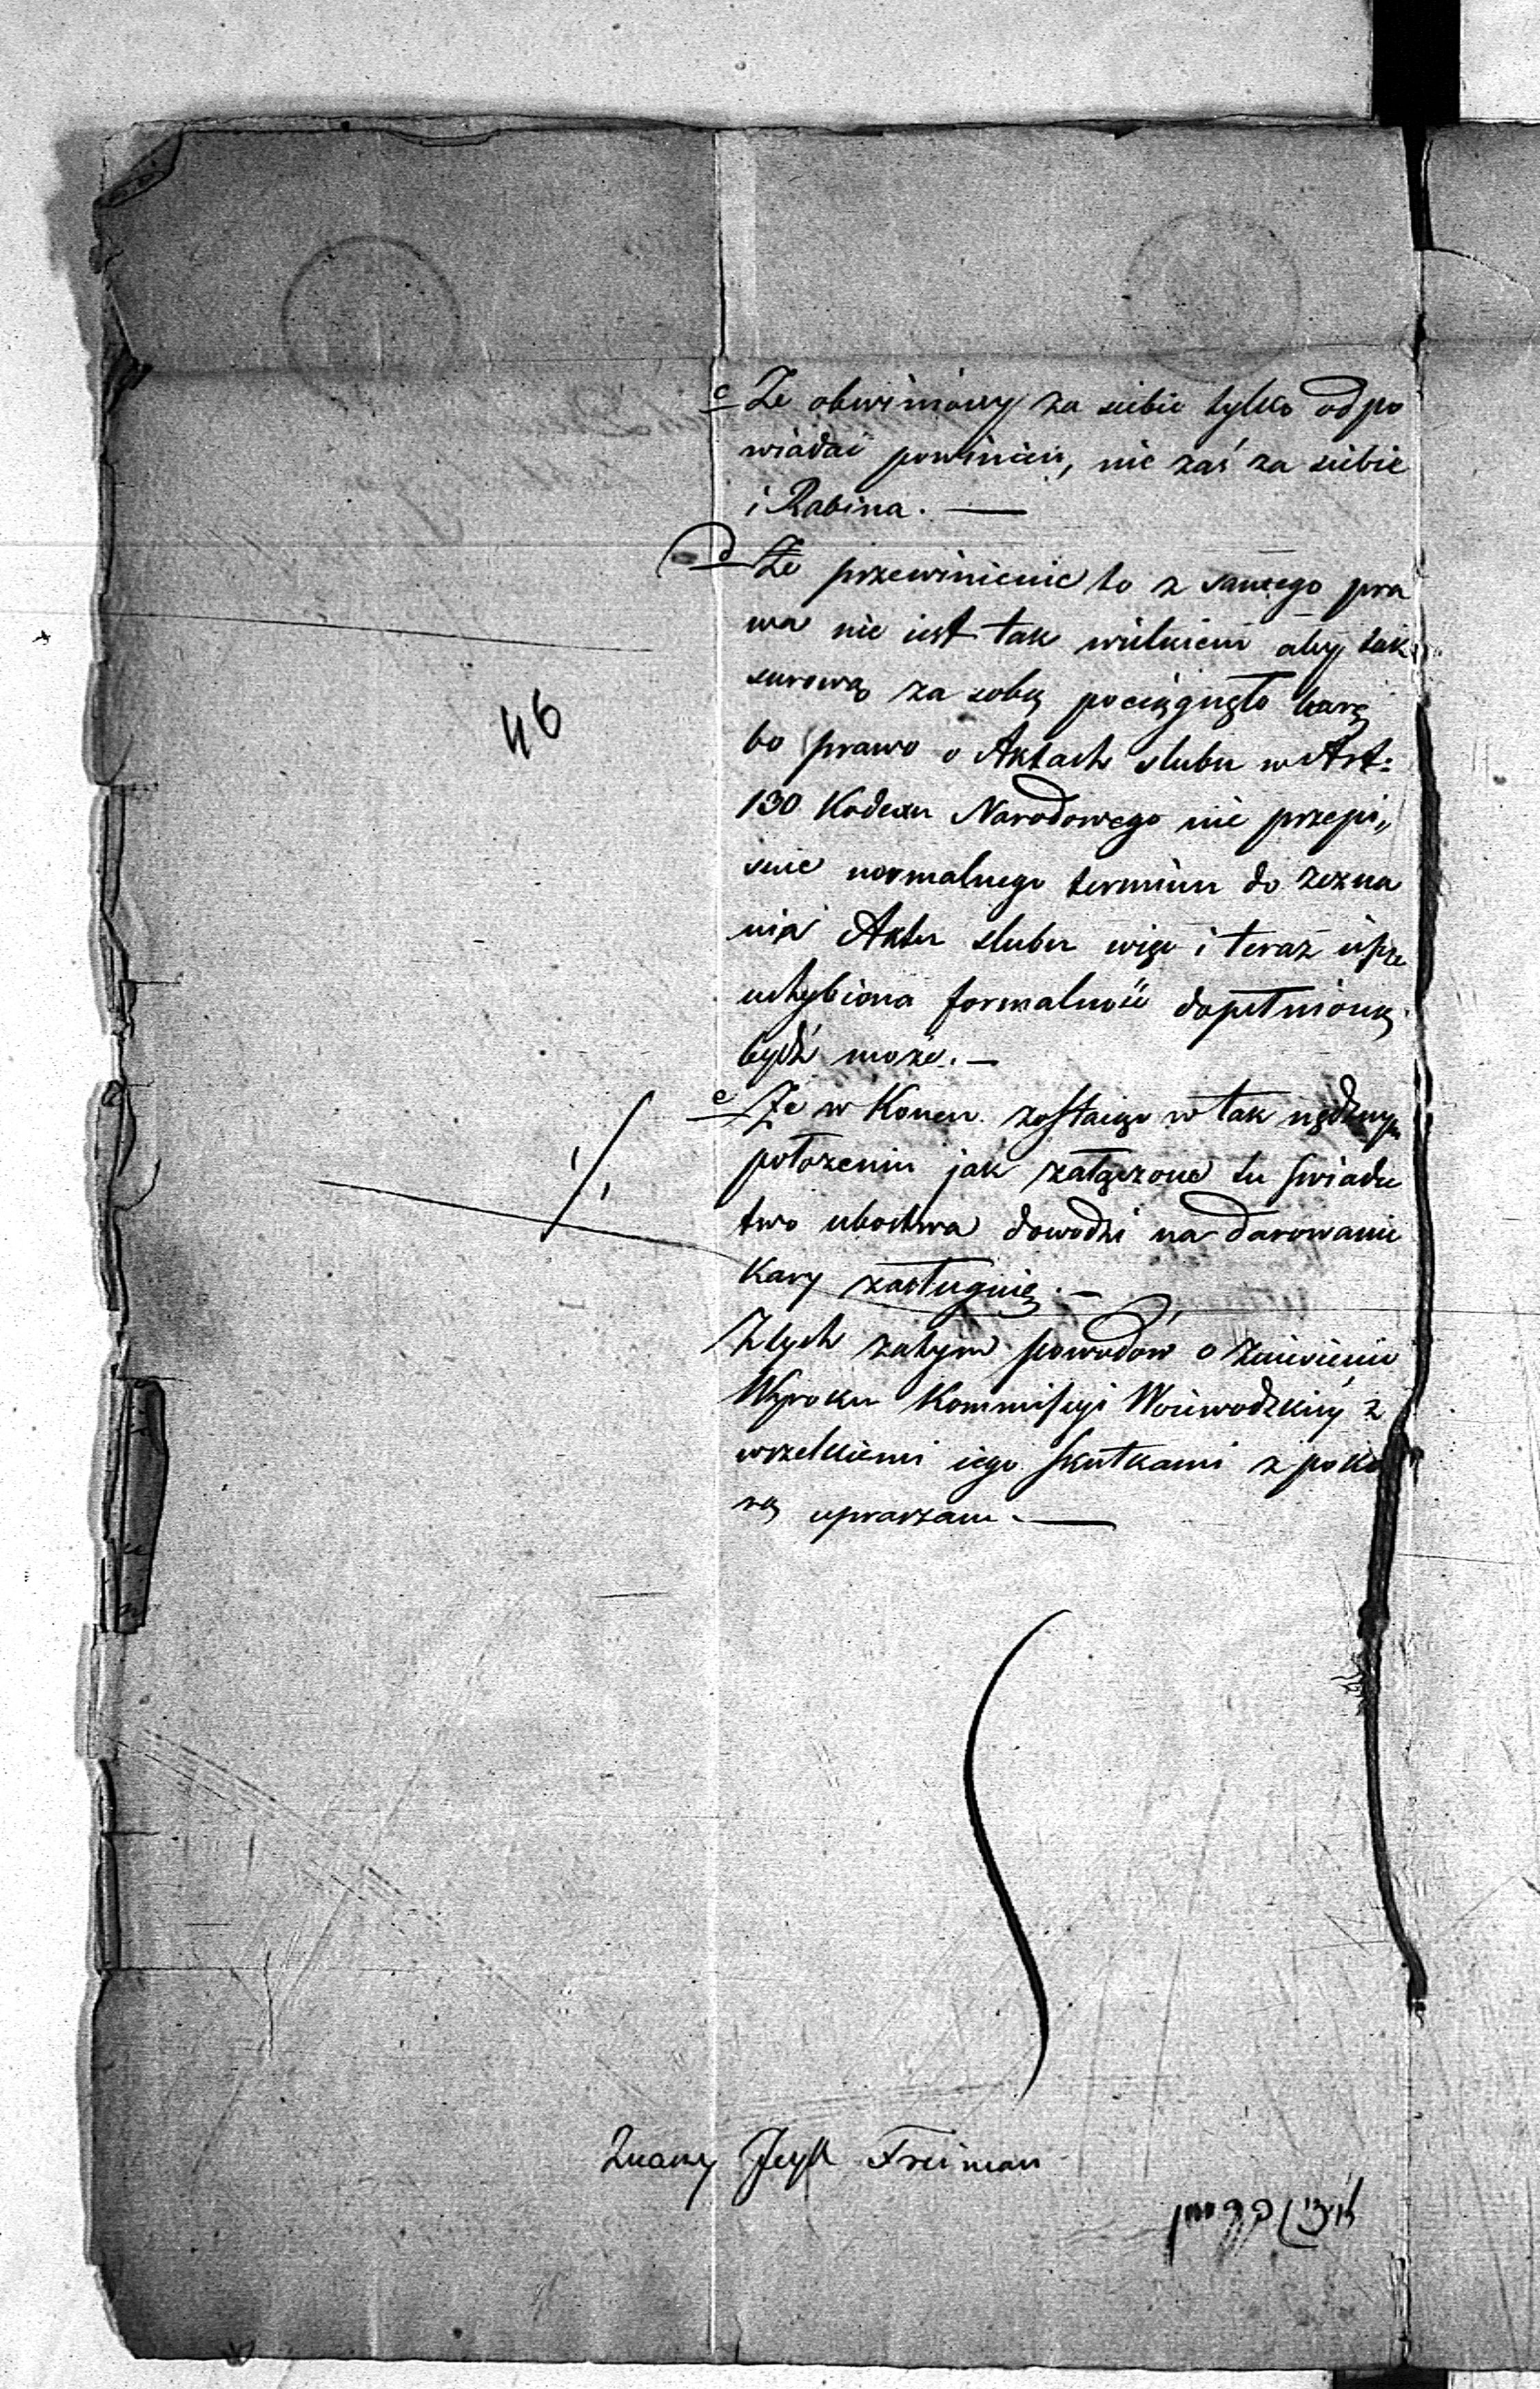 c Ze obwiniony za siebie tylko odpo
wiadać powinien, nie zaś za siebie
i Rabina. —
d Ze przewinienie to z samego pra
wa nie iest tak wielkiem aby tak
surową za sobą pociągnęło karę
bo prawo o Aktach slubu w Art:
130 Kodexu Narodowego nie przepi„
suie normalnego terminu do zezna
nia Aktu slubu więc i teraz
uchybiona formalność dopełnioną
bydź może. —
46
e Ze w Koncu zostaiąc w tak nędznym
położeniu jak załączone tu swiadec
two ubostwa dowodzi na darowanie
Kary zasługuię. —
Z tych zatym powodów o zniesienie
Wyroku Kommissyi Woiewodzkiey z
wszelkiemi iego skutkami z poko
rą upraszam. —
Znany Jcyk Freiman